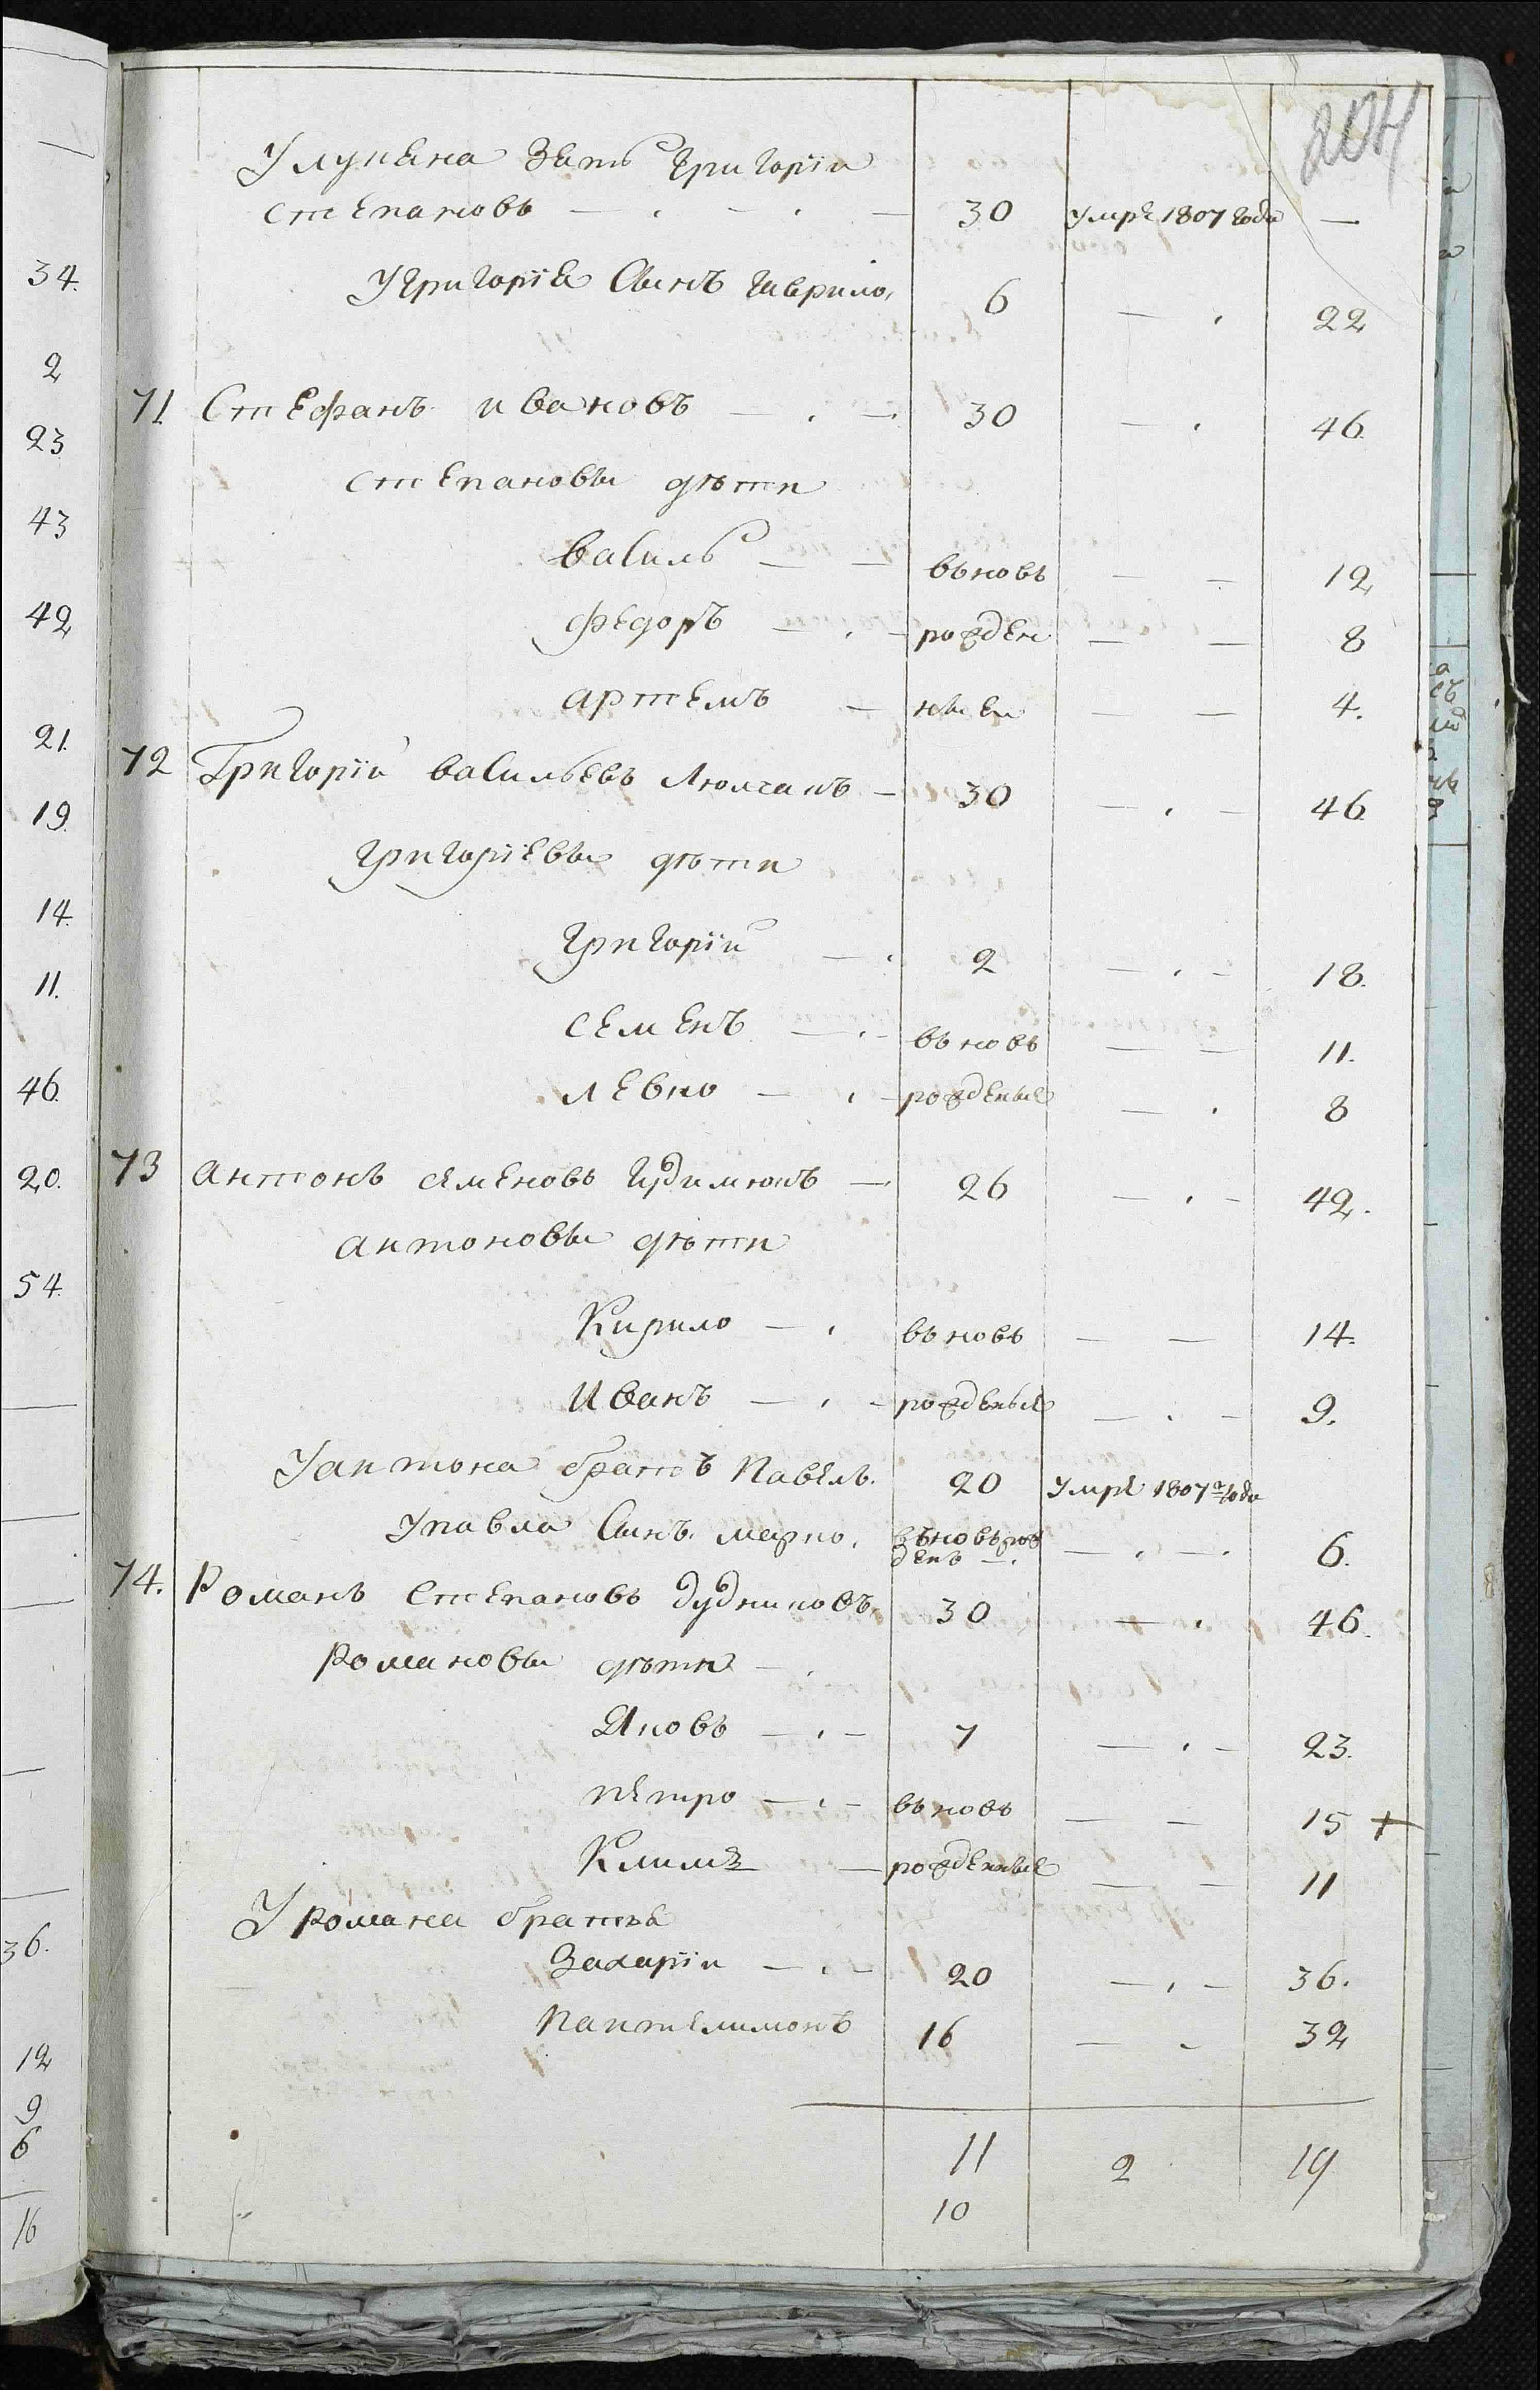 204
Улукяна зять Григорiи
степановъ — . — . — 30 умре 1807 года —
У Григорiя Сынъ Гаврило, 6 — . 22
71. Стефанъ ивановъ — . — 30 — . 46.
степановы дѣти
василь — — вьновь — — 12
федоръ — . — рожден — — 8
артемъ — ные — — 4.
72 Григорiй васильевъ — 30 — . — 46
Григорiевы дѣти
Григорiй — . 2 — . — 18.
семенъ — . — вьновь — — 11.
левко — . — рожденые — . 8
73 антонъ семеновъ — 26 — . — 42.
антоновы дѣти
Кирило — . вьновь — — 14.
Иванъ — . — рожденые — . — 9.
У антона братъ Павелъ. 20 умре 1807 года
У павла Сынъ марко. вьновь рож
денъ — . — . — . 6.
74. Романъ степановъ дудниковъ. 30 — . 46.
Романовы дѣти — .
Яковъ — . — 7 — . — 23.
петро — . — вьновь — — 15 +
Климъ — рожденные — — 11
У романа братья
Захарiи — . — 20 — . — 36.
Пантелимонъ 16 — . 32
11 2 19
10
34.
2
23
43
42
21.
19.
14.
11.
46.
20.
54.
36.
12
9
6
16